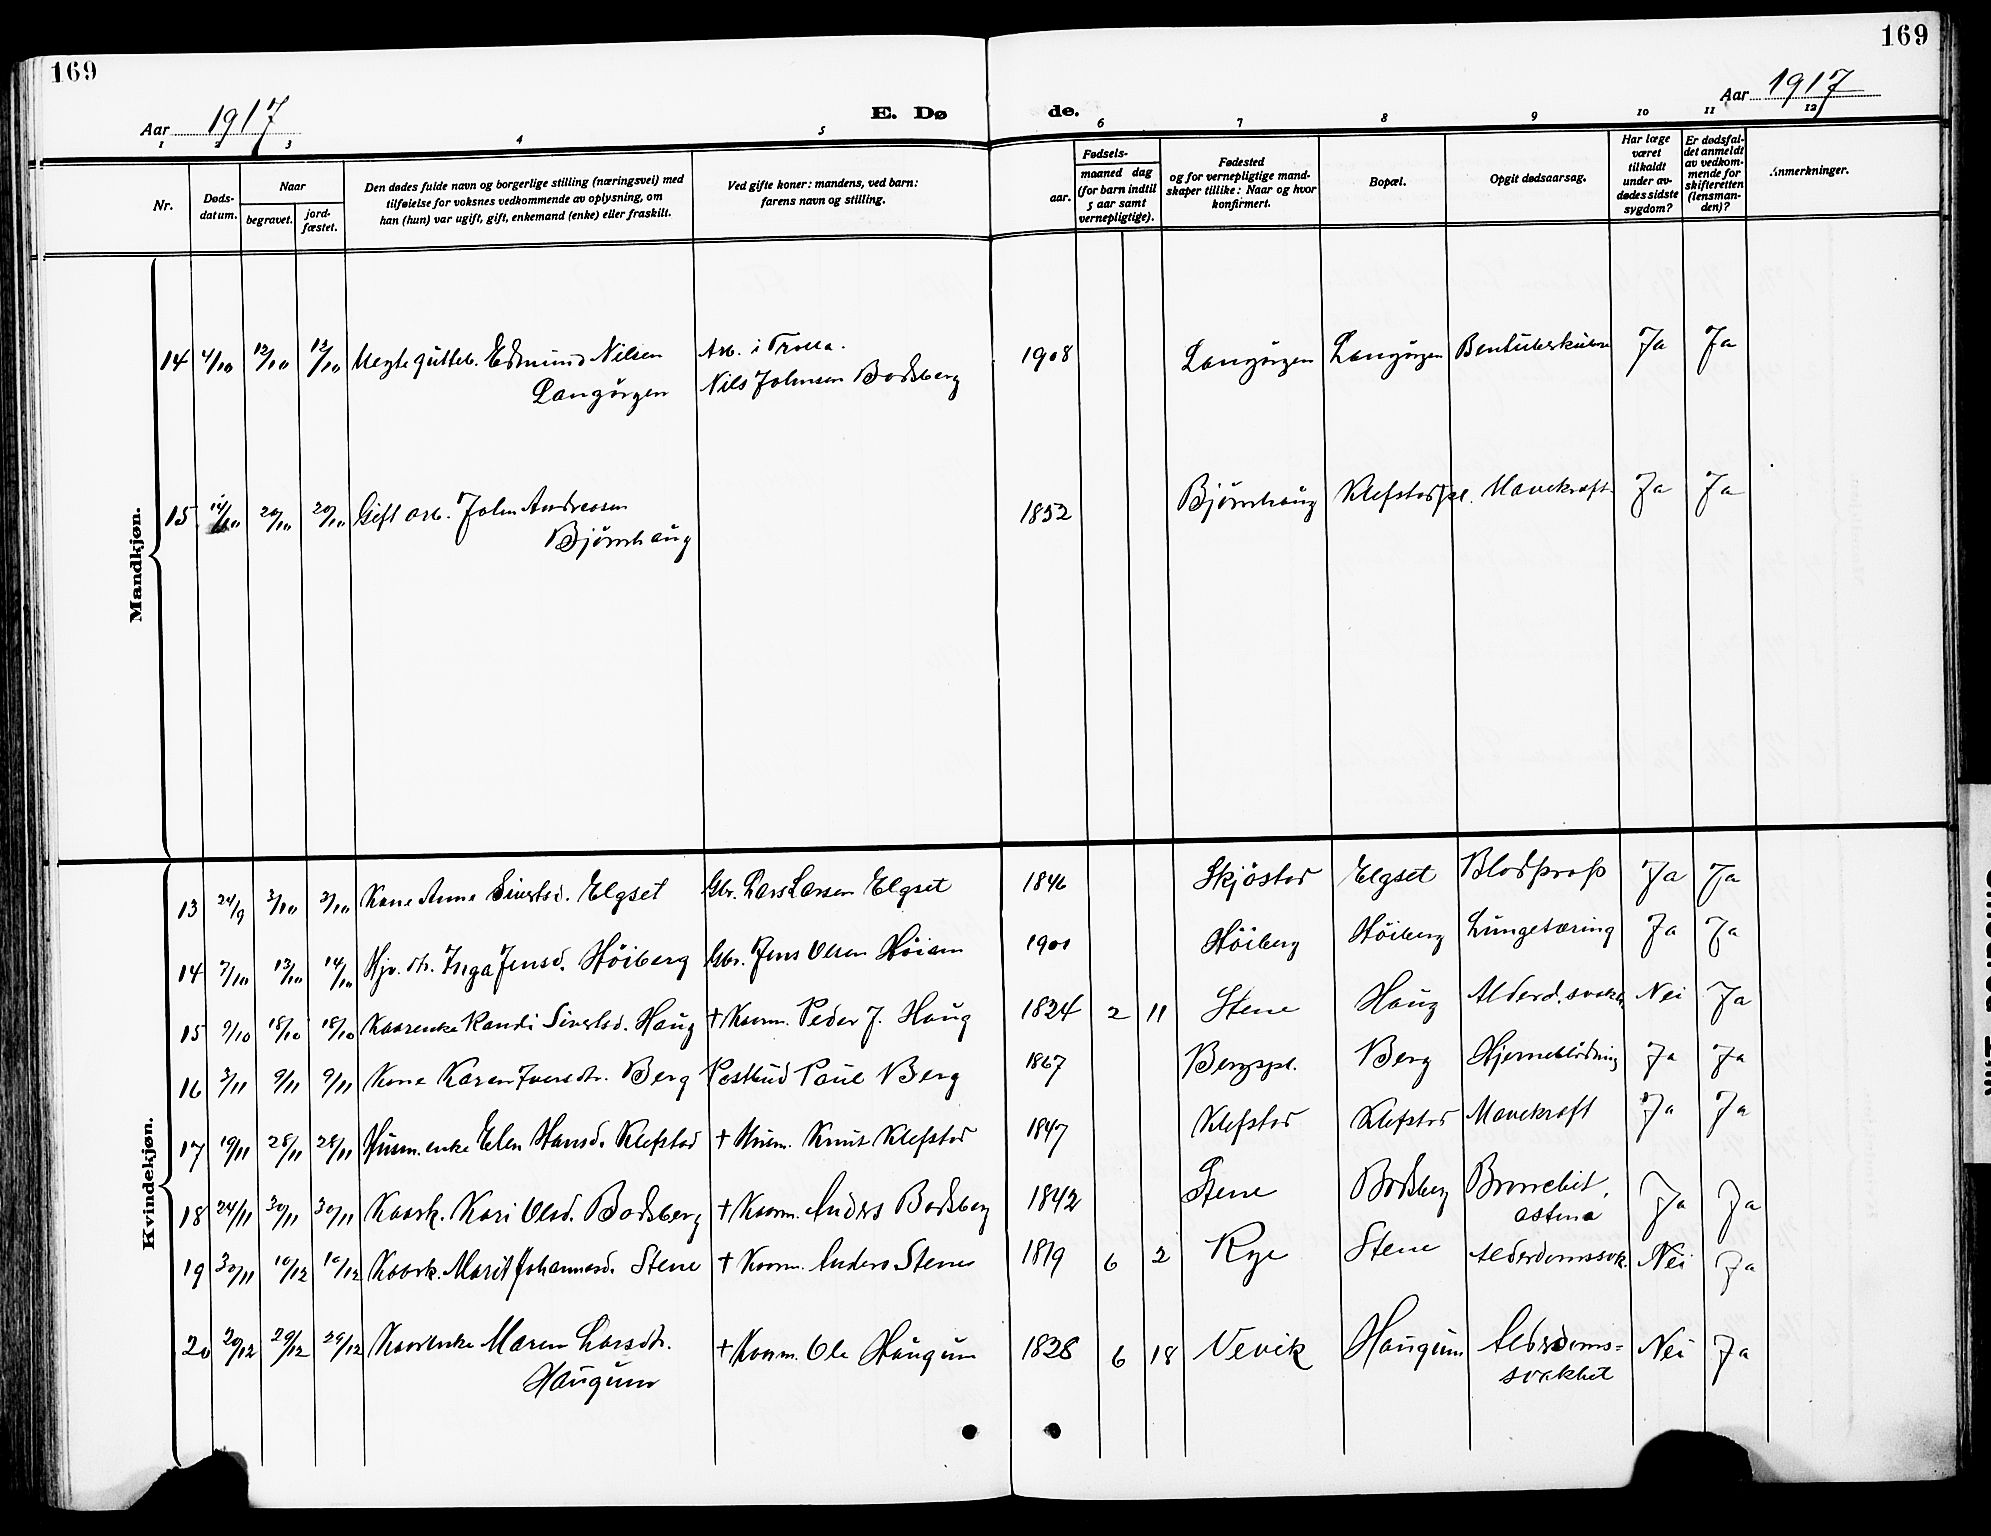 169
169
Aar 1917
E. Dø
de.
Aar 1917
1 2 3 4 5 6 7 8 9 10 11 12
Nr.
Døds-
datum.
Naar
begravet.
jord-
fæstet.
Den dødes fulde navn og borgerlige stilling (næringsvei) med
tilføielse for voksnes vedkommende av oplysning, om
han (hun) var ugift, gift, enkemand (enke) eller fraskilt.
Ved gifte koner: mandens, ved barn:
farens navn og stilling.
Fødsels-
aar.
maaned dag
(for barn indtil
5 aar samt
vernepligtige).
Fødested
og for vernepligtige mand-
skaper tillike: Naar og hvor
konfirmert.
Bopæl.
Opgit dødsaarsag.
Har læge
været
tilkaldt
under av-
dødes sidste
sygdom?
Er dødsfal-
det anmeldt
av vedkom-
mende for
skifteretten
(lensman-
den)?
Anmerkninger.
Mandkjøn.
14 4/10 12/10 12/10 Uegte gutteb. Edmund Nilsen Arb. i Trolla. 1908 Langørgen Langørgen Ja Ja
Langørgen Nils Johnsen Bodsberg
15 20/10 20/10 Gift arb. John Andreasen 1852 Bjørnhaug Klefstadpl. Mavekræft Ja Ja
Bjørnhaug
Kvindekjøn.
13 24/9 3/10 3/10 Kone Anne Sivertsd. Elgset Gbr. Lars Larsen Elgset 1846 Skjøstad Elgset Blodprop Ja Ja
14 7/10 13/10 14/10 Hjv. dtr. Inga Jensd. Höiberg Gbr. Jens Olsen Höiem 1901 Höiberg Höiberg Lungetæring Ja Ja
15 9/10 18/10 18/10 Kaarenke Randi Sivertsd. Haug + Kaarm. Peder J. Haug 1824 2 11 Stene Haug Alderd.svakh. Nei Ja
16 3/11 9/11 9/11 Kone Karen Iversdtr. Berg Postbud Paul Berg 1867 Bergspl. Berg Hjerneblödning Ja Ja
17 19/11 28/11 28/11 Husm.enke Elen Hansd. Klefstad + Husm. Knut Klefstad 1847 Klefstad Klefstad Mavekræft Ja Ja
18 24/11 30/11 30/11 Kaark. Kari Olsd. Bodsberg + Kaarm. Anders Bodsberg 1842 Stene Bodsberg Bronchit, Ja Ja
astma
19 30/11 10/12 10/12 Kaark. Marit Johannesd. Stene + Kaarm. Anders Stene 1819 6 2 Rye Stene Alderdomssvk. Nei Ja
20 20/12 29/12 29/12 Kaarenke Maren Larsdtr. + Kaarm. Ole Haugum 1828 6 18 Vevik Haugum Alderdoms= Nei Ja
Haugum svakhet